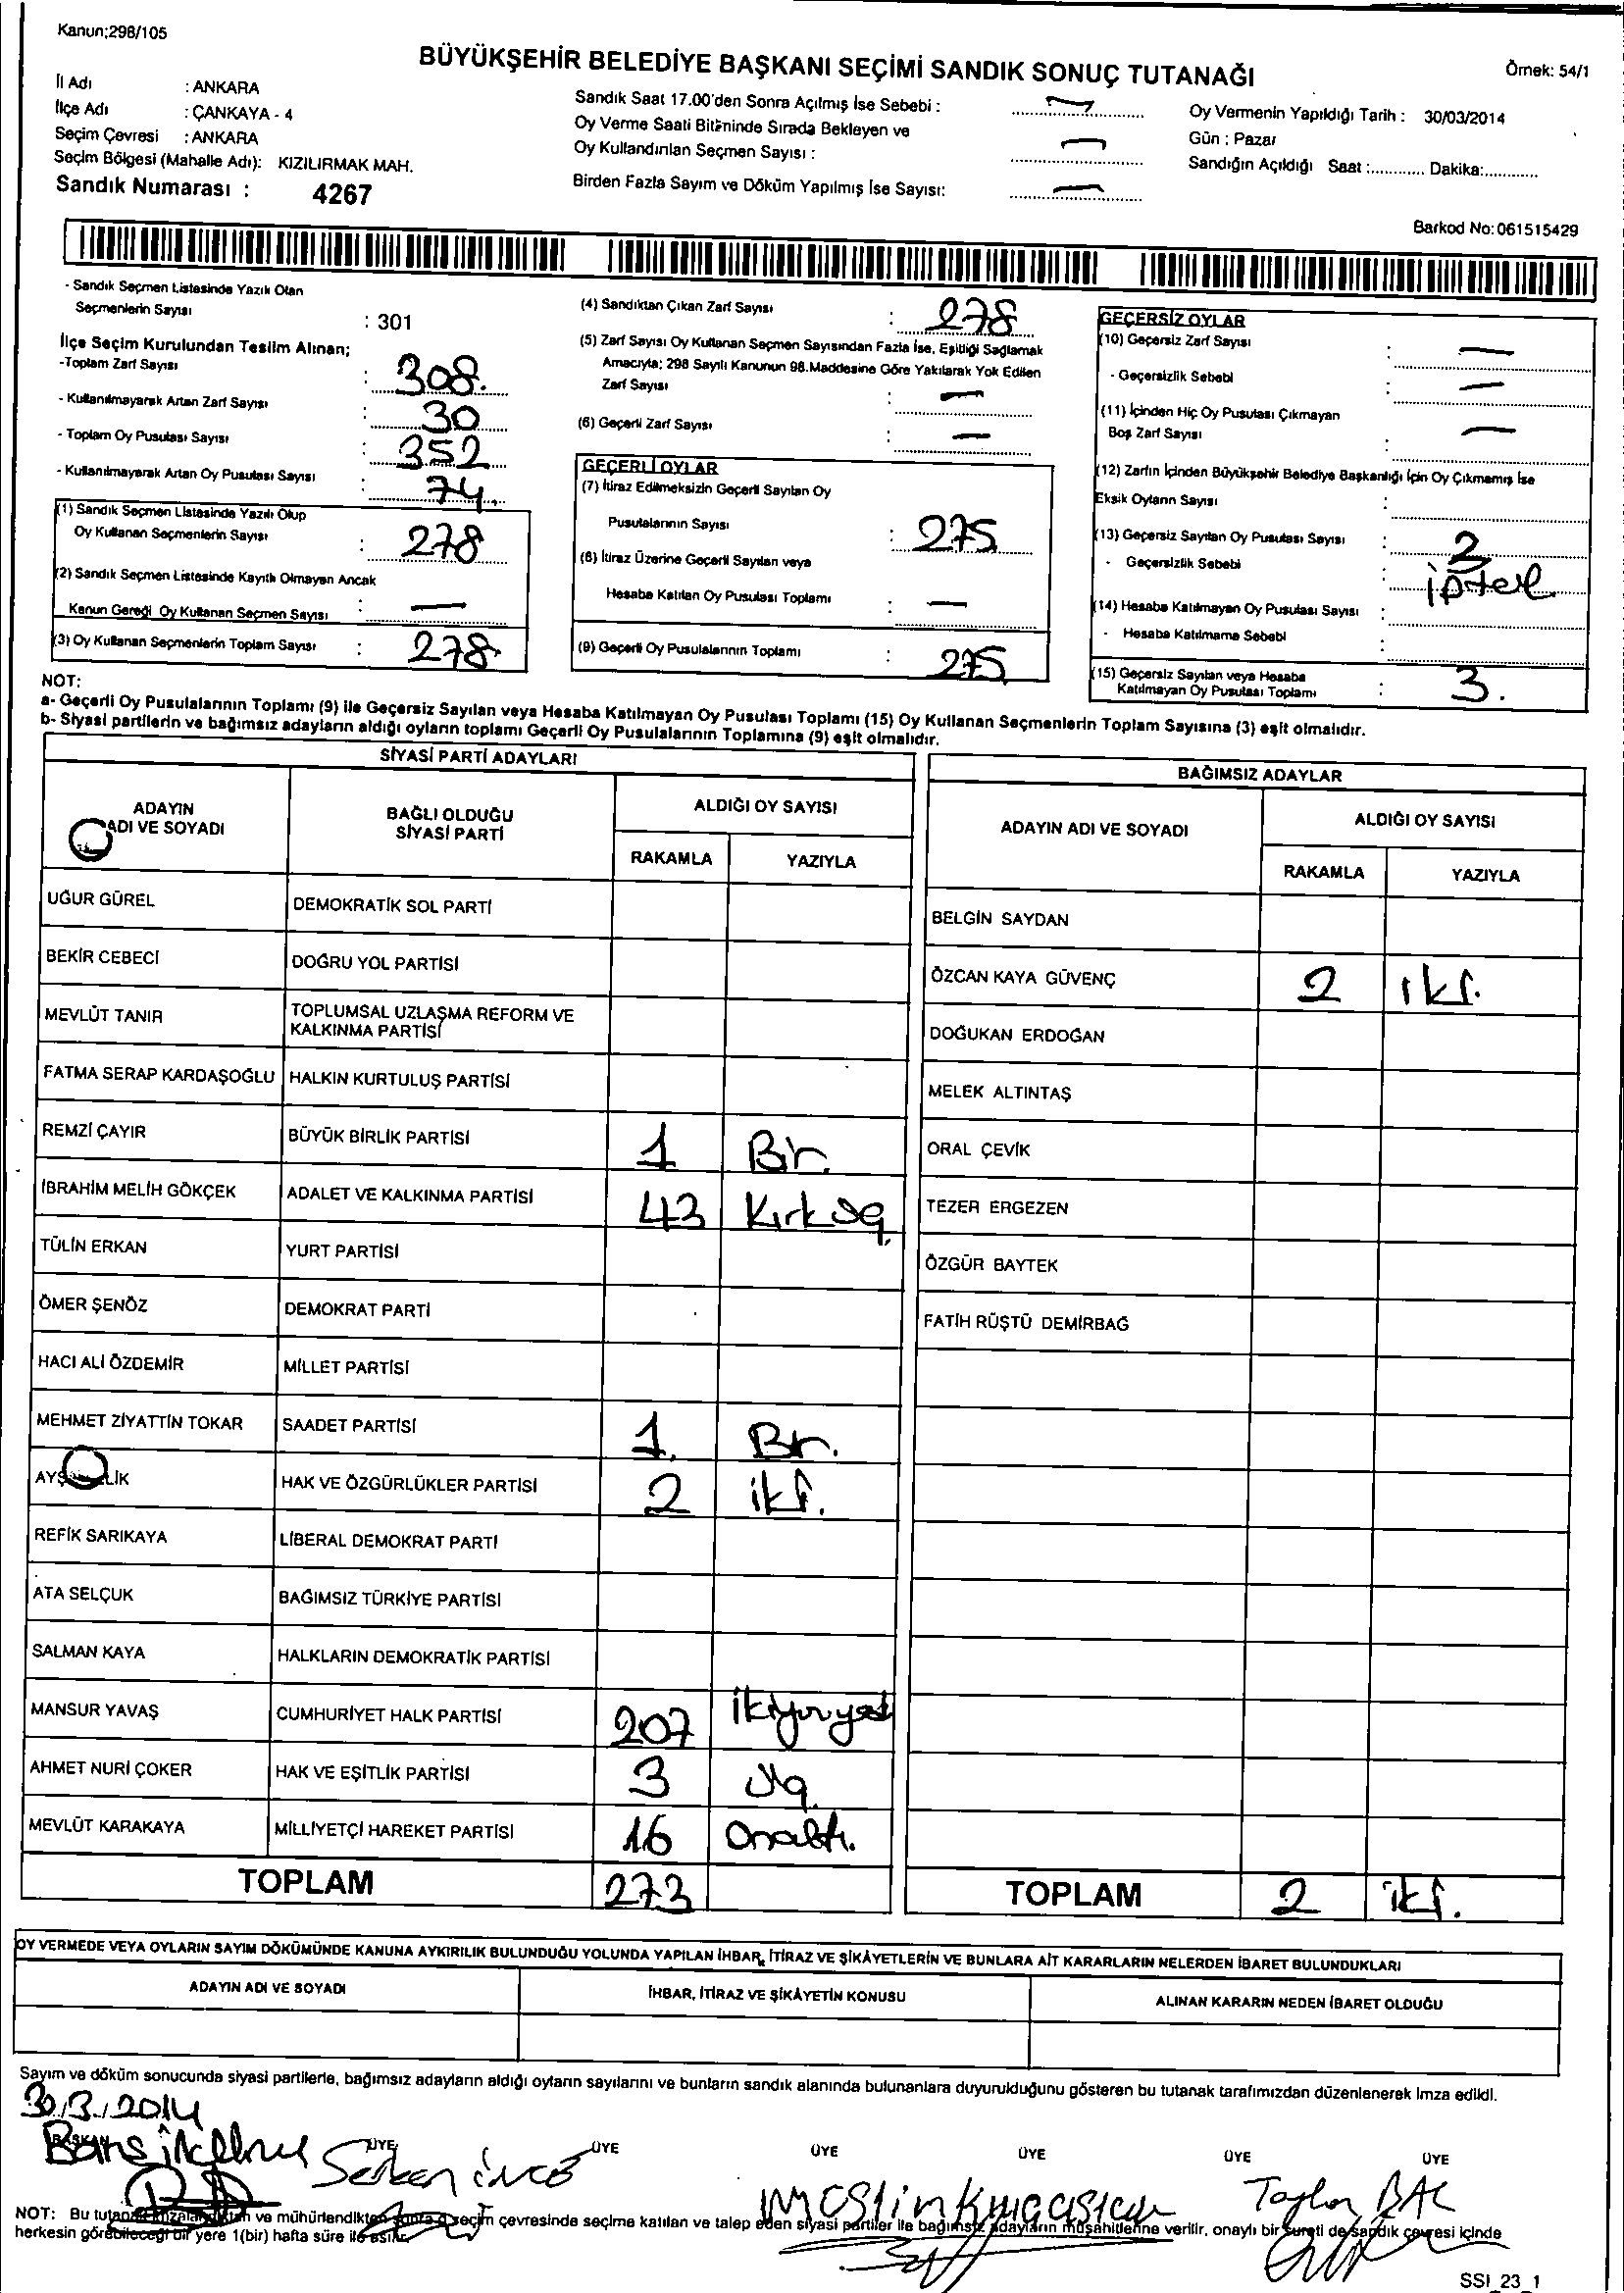 Kanun;298/105
BÜYÜKŞEHİR BELEDİYE BAŞKANI SEÇİMİ SANDIK SONUÇ TUTANAĞI
Örnek: 54/1
İl Adı : ANKARA
İlçe Adı : ÇANKAYA - 4
Seçim Çevresi : ANKARA
Seçim Bölgesi (Mahalle Adı): KIZILIRMAK MAH.
Sandık Numarası : 4267
Sandık Saat 17.00'den Sonra Açılmış İse Sebebi : —
Oy Verme Saati Bitiminde Sırada Bekleyen ve
Oy Kullandırılan Seçmen Sayısı : —
Birden Fazla Sayım ve Döküm Yapılmış İse Sayısı: —
Oy Vermenin Yapıldığı Tarih : 30/03/2014
Gün : Pazar
Sandığın Açıldığı Saat :............. Dakika:............
Barkod No:061515429
- Sandık Seçmen Listesinde Yazılı Olan
Seçmenlerin Sayısı : 301
İlçe Seçim Kurulundan Teslim Alınan;
-Toplam Zarf Sayısı : 308.
- Kullanılmayarak Artan Zarf Sayısı : 30
- Toplam Oy Pusulası Sayısı : 352
- Kullanılmayarak Artan Oy Pusulası Sayısı : 74.
(1) Sandık Seçmen Listesinde Yazılı Olup
Oy Kullanan Seçmenlerin Sayısı : 278
(2) Sandık Seçmen Listesinde Kayıtlı Olmayan Ancak
Kanun Gereği Oy Kullanan Seçmen Sayısı : —
(3) Oy Kullanan Seçmenlerin Toplam Sayısı : 278
(4) Sandıktan Çıkan Zarf Sayısı : 278
(5) Zarf Sayısı Oy Kullanan Seçmen Sayısından Fazla İse, Eşitliği Sağlamak
Amacıyla; 298 Sayılı Kanunun 98.Maddesine Göre Yakılarak Yok Edilen
Zarf Sayısı : —
(6) Geçerli Zarf Sayısı : —
GEÇERLİ OYLAR
(7) İtiraz Edilmeksizin Geçerli Sayılan Oy
Pusulalarının Sayısı : 275
(8) İtiraz Üzerine Geçerli Sayılan veya
Hesaba Katılan Oy Pusulası Toplamı : —
(9) Geçerli Oy Pusulalarının Toplamı : 275
GEÇERSİZ OYLAR
(10) Geçersiz Zarf Sayısı : —
- Geçersizlik Sebebi : —
(11) İçinden Hiç Oy Pusulası Çıkmayan
Boş Zarf Sayısı : —
(12) Zarfın İçinden Büyükşehir Belediye Başkanlığı İçin Oy Çıkmamış İse
Eksik Oyların Sayısı :
(13) Geçersiz Sayılan Oy Pusulası Sayısı : 3
- Geçersizlik Sebebi : iptal
(14) Hesaba Katılmayan Oy Pusulası Sayısı :
- Hesaba Katılmama Sebebi :
(15) Geçersiz Sayılan veya Hesaba
Katılmayan Oy Pusulası Toplamı : 3.
NOT:
a- Geçerli Oy Pusulalarının Toplamı (9) ile Geçersiz Sayılan veya Hesaba Katılmayan Oy Pusulası Toplamı (15) Oy Kullanan Seçmenlerin Toplam Sayısına (3) eşit olmalıdır.
b- Siyasi partilerin ve bağımsız adayların aldığı oyların toplamı Geçerli Oy Pusulalarının Toplamına (9) eşit olmalıdır.
SİYASİ PARTİ ADAYLARI
ADAYIN ADI VE SOYADI
BAĞLI OLDUĞU SİYASİ PARTİ
ALDIĞI OY SAYISI
RAKAMLA YAZIYLA
UĞUR GÜREL DEMOKRATİK SOL PARTİ
BEKİR CEBECİ DOĞRU YOL PARTİSİ
MEVLÜT TANIR TOPLUMSAL UZLAŞMA REFORM VE
KALKINMA PARTİSİ
FATMA SERAP KARDAŞOĞLU HALKIN KURTULUŞ PARTİSİ
REMZİ ÇAYIR BÜYÜK BİRLİK PARTİSİ 1 Bir.
İBRAHİM MELİH GÖKÇEK ADALET VE KALKINMA PARTİSİ 43 Kırküç.
TÜLİN ERKAN YURT PARTİSİ
ÖMER ŞENÖZ DEMOKRAT PARTİ
HACI ALİ ÖZDEMİR MİLLET PARTİSİ
MEHMET ZİYATTİN TOKAR SAADET PARTİSİ 1. Bir.
LİK HAK VE ÖZGÜRLÜKLER PARTİSİ 2 iki.
REFİK SARIKAYA LİBERAL DEMOKRAT PARTİ
ATA SELÇUK BAĞIMSIZ TÜRKİYE PARTİSİ
SALMAN KAYA HALKLARIN DEMOKRATİK PARTİSİ
MANSUR YAVAŞ CUMHURİYET HALK PARTİSİ 207 ikiyüzyedi
AHMET NURİ ÇOKER HAK VE EŞİTLİK PARTİSİ 3 üç.
MEVLÜT KARAKAYA MİLLİYETÇİ HAREKET PARTİSİ 16 Onaltı.
TOPLAM 273
BAĞIMSIZ ADAYLAR
ADAYIN ADI VE SOYADI
ALDIĞI OY SAYISI
RAKAMLA YAZIYLA
BELGİN SAYDAN
ÖZCAN KAYA GÜVENÇ 2 iki.
DOĞUKAN ERDOĞAN
MELEK ALTINTAŞ
ORAL ÇEVİK
TEZER ERGEZEN
ÖZGÜR BAYTEK
FATİH RÜŞTÜ DEMİRBAĞ
TOPLAM 2 iki.
OY VERMEDE VEYA OYLARIN SAYIM DÖKÜMÜNDE KANUNA AYKIRILIK BULUNDUĞU YOLUNDA YAPILAN İHBAR, İTİRAZ VE ŞİKÂYETLERİN VE BUNLARA AİT KARARLARIN NELERDEN İBARET BULUNDUKLARI
ADAYIN ADI VE SOYADI İHBAR, İTİRAZ VE ŞİKÂYETİN KONUSU ALINAN KARARIN NEDEN İBARET OLDUĞU
Sayım ve döküm sonucunda siyasi partilerle, bağımsız adayların aldığı oyların sayılarını ve bunların sandık alanında bulunanlara duyurulduğunu gösteren bu tutanak tarafımızdan düzenlenerek imza edildi.
30.3.2014
BAŞKAN ÜYE ÜYE ÜYE ÜYE ÜYE ÜYE
Serkan ince
BAL
NOT: Bu tutanak imzalandıktan ve mühürlendikten sonra o seçim çevresinde seçime katılan ve talep eden siyasi partiler ile bağımsız adayların müşahitlerine verilir, onaylı bir sureti de sandık çevresi içinde
herkesin görebileceği bir yere 1(bir) hafta süre ile asılır.
SSI_23_1